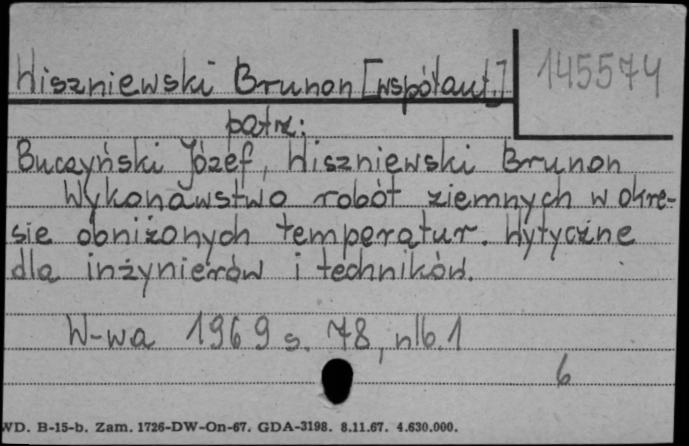 Wiszniewski Brunon [współaut.] 145574
patrz:
Buczyński Józef, Wiszniewski Brunon
Wykonawstwo robót ziemnych w okre-
sie obniżonych temperatur. Wytyczne
dla inżynierów i techników.
W-wa 1969 s. 78, nlb. 1
6
WD. B-15-b. Zam. 1726-DW-On-67. GDA-3198. 8.11.67. 4.630.000.